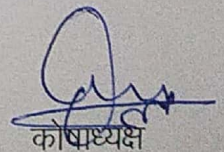 कोषाध्यक्ष